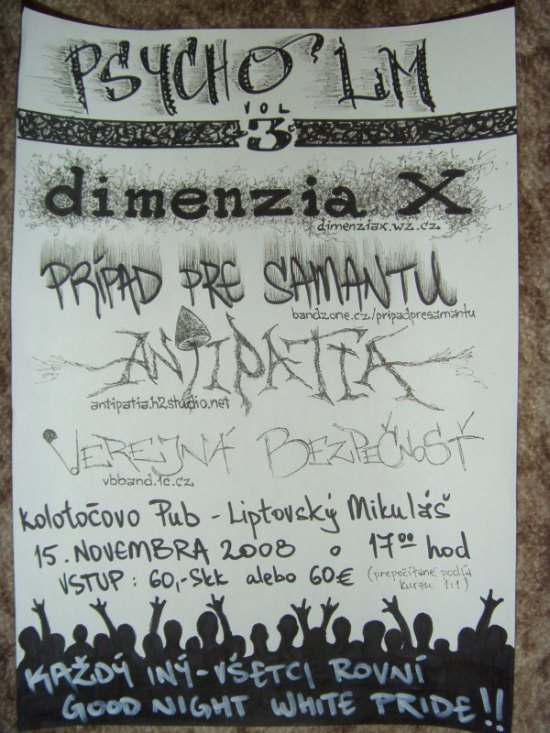 PSYCHO LM
VOL
3
dimenzia X
dimenziax.wz.cz
PRÍPAD PRE SAMANTU
bandzone.cz/pripadpresamantu
ANTIPATIA
antipatia.h2studio.net
VEREJNÁ BEZPEČNOSŤ
vbband.ic.cz
Kolotočovo Pub - Liptovský Mikuláš
15. NOVEMBRA 2008 o 17⁰⁰ hod
VSTUP: 60,-Skk alebo 60€ (prepočítané podľa
kurzu 1:1)
KAŽDÝ INÝ-VŠETCI ROVNÍ
GOOD NIGHT WHITE PRIDE!!